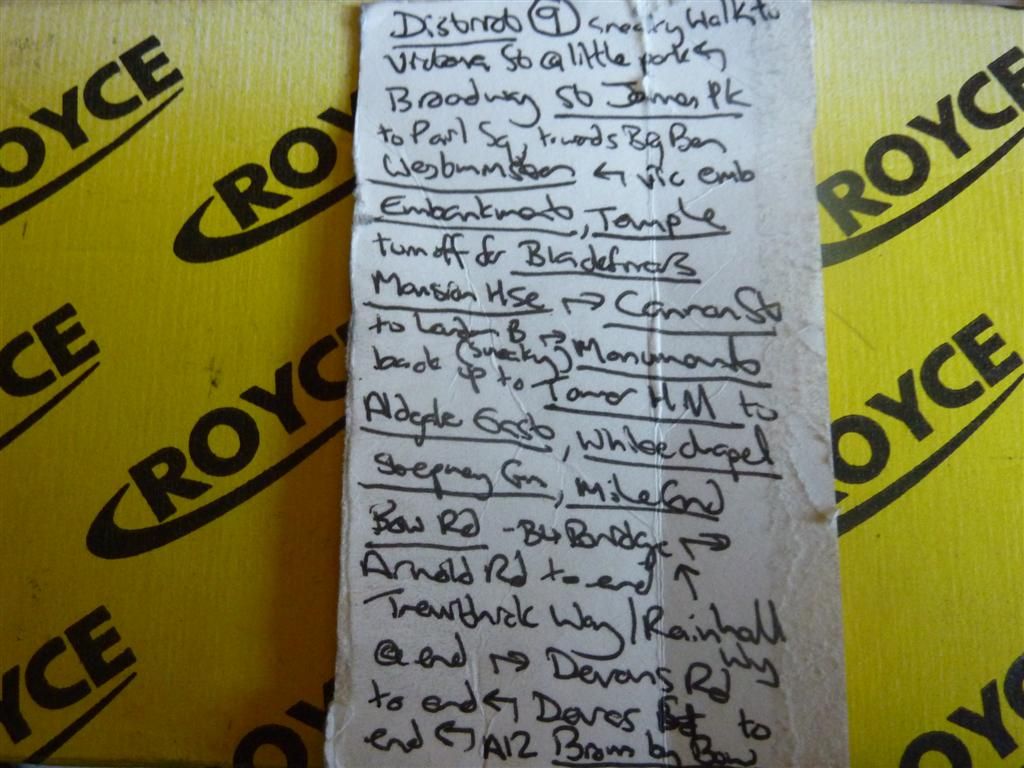 District 9 sneaky walk to
Victoria St @ little park ↰
Broadway St James Pk
to Parl Sq, towards Big Ben
Westminster ↰ vic emb
Embankment, Temple
turn off for Blackfriars
Mansion Hse ↱ Cannon St
to Lond B ↱
back (sneaky) Monument
up to Tower HM to
Aldgate East, Whitechapel
Stepney Gn, Mile End
Bow Rd - B4 Bridge ↱
Arnold Rd to end ↑
Trewithick Way / Rainhall Wy
@ end ↱ Devons Rd
to end ↰ Devas St to
end ↰ A12 Brom by Bow
ROYCE
ROYCE
ROYCE
ROYCE
ROYCE
OYCE
CE
YCE
OYCE